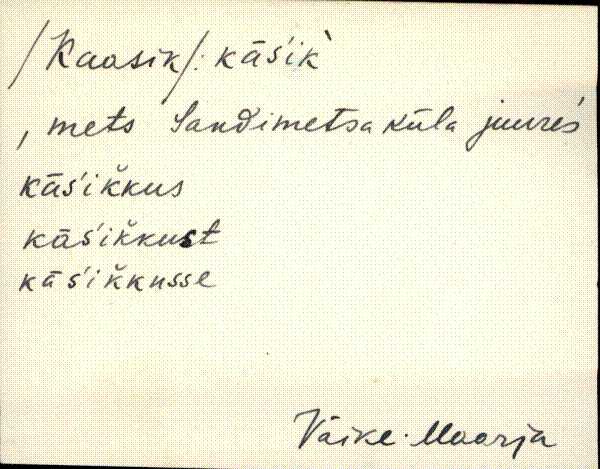 /Kaasik/: kāśik̀
, mets Sandimetsa küla juures
kāśik̆kus
kāśik̆kust
kāśik̆kusse
Väike-Maarja